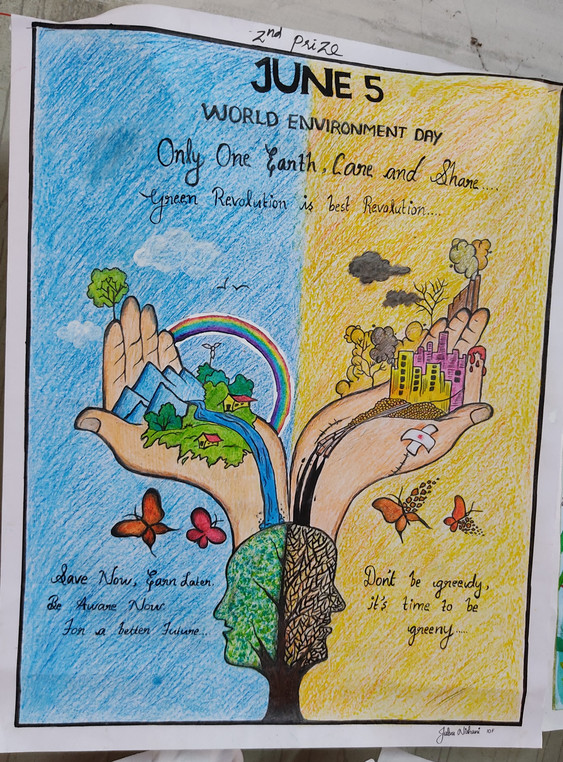 2nd Prize
JUNE 5
WORLD ENVIRONMENT DAY
Only One Earth, Care and Share....
Green Revolution is best Revolution....
Save Now, Earn Later.
Be Aware Now
For a better Future...
Don't be greedy,
it's time to be
greeny.....